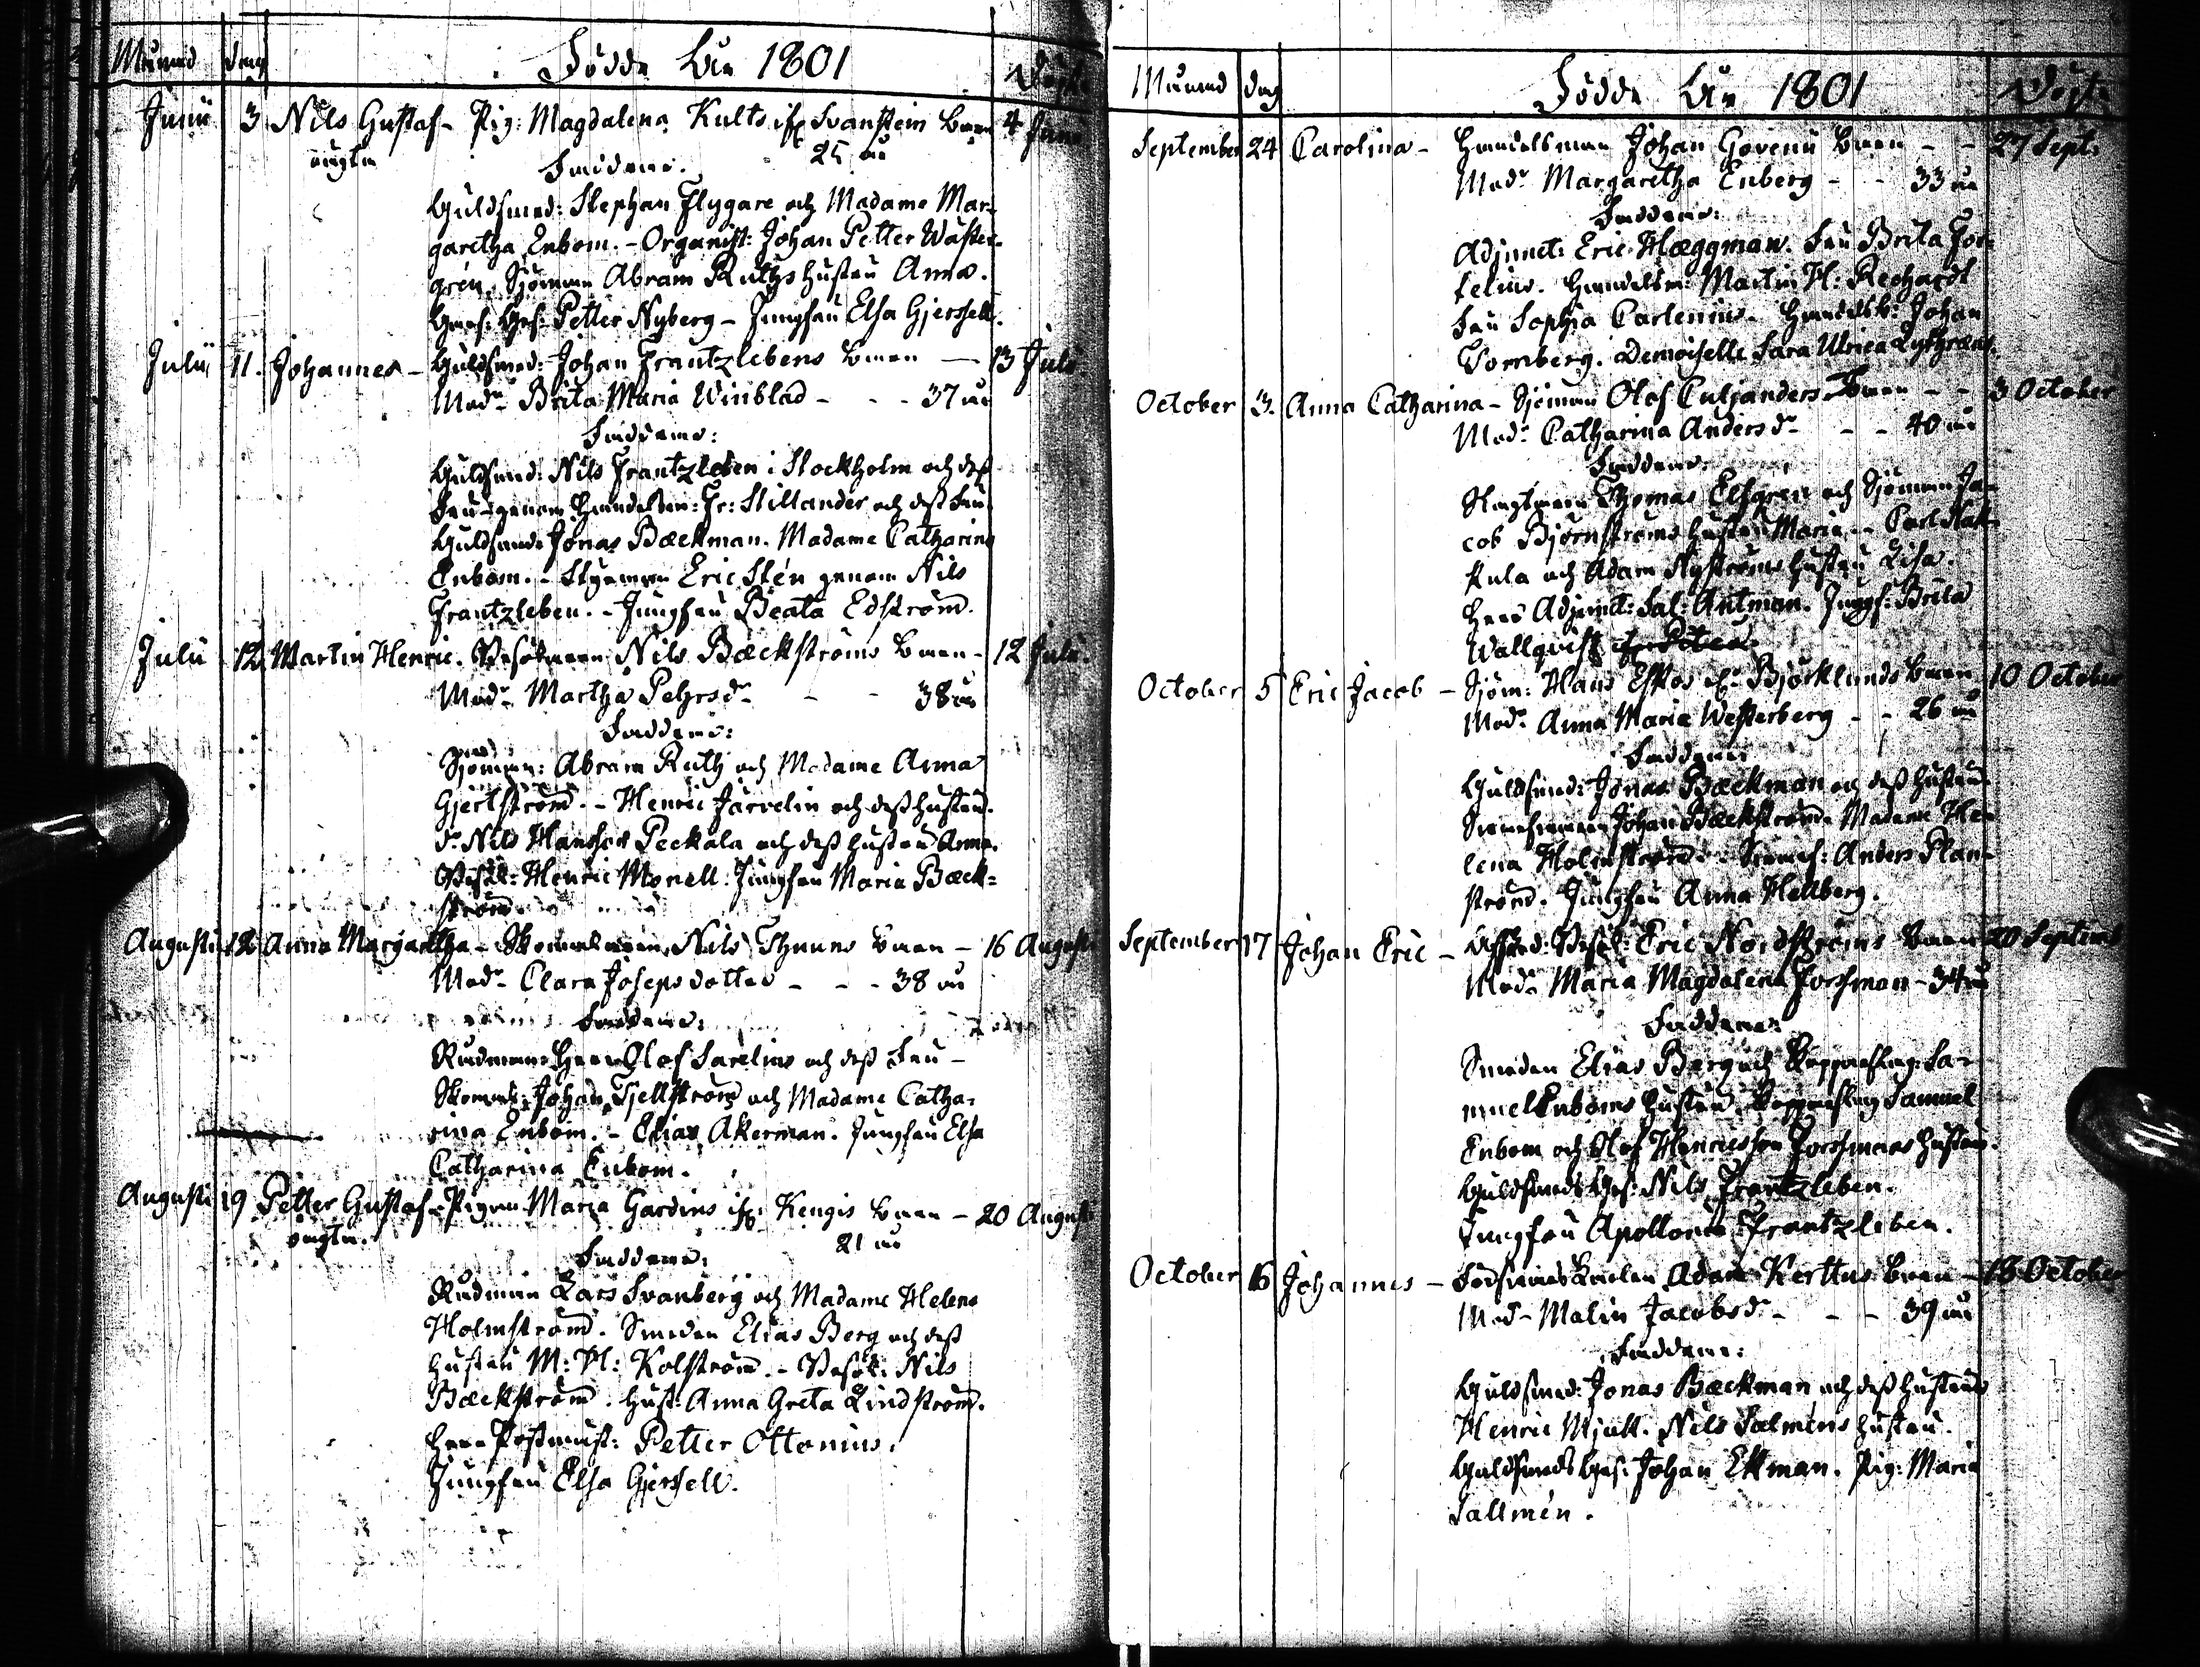 Månad dag Födde åhr 1801 Döpte
Junii 3 Nils Gustaf - Pig: Magdalena Kults ifr. Svanstein barn 4 Junii
oägta 25 år
Faddrar:
Guldsmed: Stephan Flygare och Madame Mar-
garetha Enbom. - Organist: Johan Petter Wäster-
grén. Sjöman Abram Ruths hustru Anna.
Petter Nyberg - Jungfru Elsa Gjersell.
Julii 11. Johannes - Guldsmed: Johan Frantzlebens barn - 13 Julii
Modr. Brita Maria Winblad - - - 37 år
Faddrar:
Guldsmed: Nils Frantzleben i Stockholm och dess
Fru genom Handelsm: Fr: Stillander och dess Fru
Guldsmed: Jonas Bæckman. Madame Catharina
Enbom. - Styrman Eric Stén genom Nils
Frantzleben. - Jungfru Beata Edström.
Julii 12. Martin Henric. Besökaren Nils Bæckströms barn - 12 Julii.
Modr. Martha Pehrsdr. - - 38 år
Faddrar:
Sjöman: Abram Ruth och Madame Anna
Gjertström. - Henric Järvelin och dess hustru.
Dr. Nils Hansson Peckala och dess hustru Anna.
Besök: Henric Monell. Jungfru Maria Bæck=
ström.
Augusti 12. Anna Margaretha - Skomakaren Nils Thuuns barn - 16 Augusti
Modr. Clara Josepsdotter - - - 38 år
Faddrar:
Rådman Herr Olof Sarelius och dess Fru -
Skomak: Johan Fjellström och Madame Catha-
rina Enbom. - Elias Åkerman. Jungfru Elsa
Catharina Enbom.
Augusti 19 Petter Gustaf - Pigan Maria Gardins ifr. Kengis barn - 20 Augusti
oägta. 21 år
Faddrar:
Rådman Lars Svanberg och Madame Helena
Holmström. Smeden Elias Berg och dess
hustru M: M: Kolström. - Besök: Nils
Bæckström. hust: Anna Greta Lindström.
Herr Postmäst: Petter Ottonius.
Jungfru Elsa Gjersell.
Månad dag Födde åhr 1801 Döpte
September 24 Carolina - Handelsman Johan Govenii barn - - 27 Sept:
Modr. Margaretha Enberg - - 33 år
Faddrar:
Adjunct: Eric Hæggman. Fru Brita For-
telius. Handelsm: Martin H: Reghardt
Fru Sophia Carlenius. Johan
Tornberg. Demoiselle Sara Ulrica
October 3. Anna Catharina - Sjöman Olof barn - - 3 October
Modr. Catharina Andersdr. - - 40 år
Faddrar:
Thomas Elfgren och Sjöman Ja-
cob Björnströms hustru Maria. - Carl
och Adam Nyströms hustru Lisa.
Herr Adjunct: Sal: Antman. Jungf: Brita
Wallqvist
October 5 Eric Jacob - Sjöm: Hans Eskos Björklunds barn 10 October
Modr. Anna Maria Westerberg - - 26 år
Faddrar:
Guldsmed: Jonas Bæckman och dess hustru
Johan Bæckström. Madame He-
lena Holmström. Anders Plan-
ström. Jungfru Anna Hellberg.
September 17 Johan Eric - Besök: Eric Nordströms barn 20 Septemb
Modr. Maria Magdalena Forsman - 34 år
Faddrar:
Smeden Elias Berg och Kopparslag: Sa-
muel Enboms hustru. Kopparslag Samuel
Enbom och Olof Henricsson Forsmans hustru.
Guldsmeds Ges: Nils Frantzleben.
Jungfru Apollonia Frantzleben.
October 16 Johannes - Adam Kerttus barn - 18 October
Mod - Malin Jacobsdr. - - - 39 år
Faddrar:
Guldsmed: Jonas Bæckman och dess hustru
Henric Nils Salmins hustru.
Guldsmeds Ges: Johan Ekman. Pig: Maria
Sallmén.